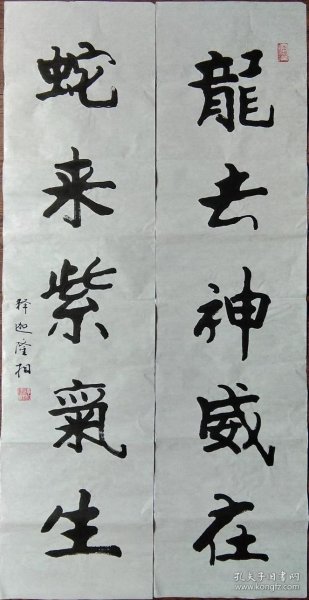 龍去神威在
蛇来紫氣生
释迦隆相
孔夫子旧书网
www.kongfz.com